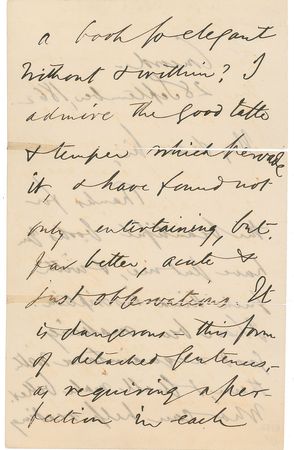 a book so elegant
without & within? I
admire the good taste
& temper which pervade
it, & have found not
only entertaining, but,
far better, acute &
just observations. It
is dangerous – this form
of detached sentences, –
as requiring a per-
fection in each